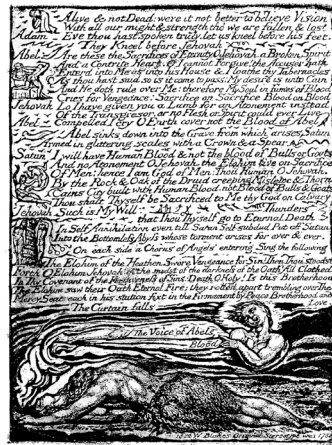 Alive & not Dead: were it not better to believe Vision
With all our might & strength tho we are fallen & lost
Adam Eve thou hast spoken truly. let us kneel before his feet.
They Kneel before Jehovah
Abel Are these the Sacrifices of Eternity O Jehovah, a Broken Spirit
And a Contrite Heart. O I cannot Forgive! the Accuser hath
Enterd into Me as into his House & I loathe thy Tabernacles
As thou hast said so is it come to pass: My desire is unto Cain
And He doth rule over Me: therefore My Soul in fumes of Blood
Cries for Vengeance: Sacrifice on Sacrifice Blood on Blood
Jehovah Lo I have given you a Lamb for an Atonement instead
Of the Transgressor, or no Flesh or Spirit could ever Live
Abel Compelled I cry O Earth cover not the Blood of Abel
Abel sinks down into the Grave from which arises Satan
Armed in glittering scales with a Crown & a Spear
Satan I will have Human Blood & not the blood of Bulls or Goats
And no Atonement O Jehovah the Elohim live on Sacrifice
Of Men: hence I am God of Men: Thou Human O Jehovah.
By the Rock & Oak of the Druid creeping Mistletoe & Thorn
Cains City built with Human Blood, not Blood of Bulls & Goats
Thou shalt Thyself be Sacrificed to Me thy God on Calvary
Jehovah Such is My Will. Thunders
that Thou Thyself go to Eternal Death
In Self Annihilation even till Satan Self-subdud Put off Satan
Into the Bottomless Abyss whose torment arises for ever & ever.
On each side a Chorus of Angels entering Sing the following
The Elohim of the Heathen Swore Vengeance for Sin! Then Thou stoodst
Forth O Elohim Jehovah! in the midst of the darkness of the Oath! All Clothed
In Thy Covenant of the Forgiveness of Sins: Death O Holy! Is this Brotherhood
The Elohim saw their Oath Eternal Fire; they rolled apart trembling over The
Mercy Seat: each in his station fixt in the Firmament by Peace Brotherhood and Love.
The Curtain falls
The Voice of Abels
Blood
1822 W Blakes Original Stereotype was 1788